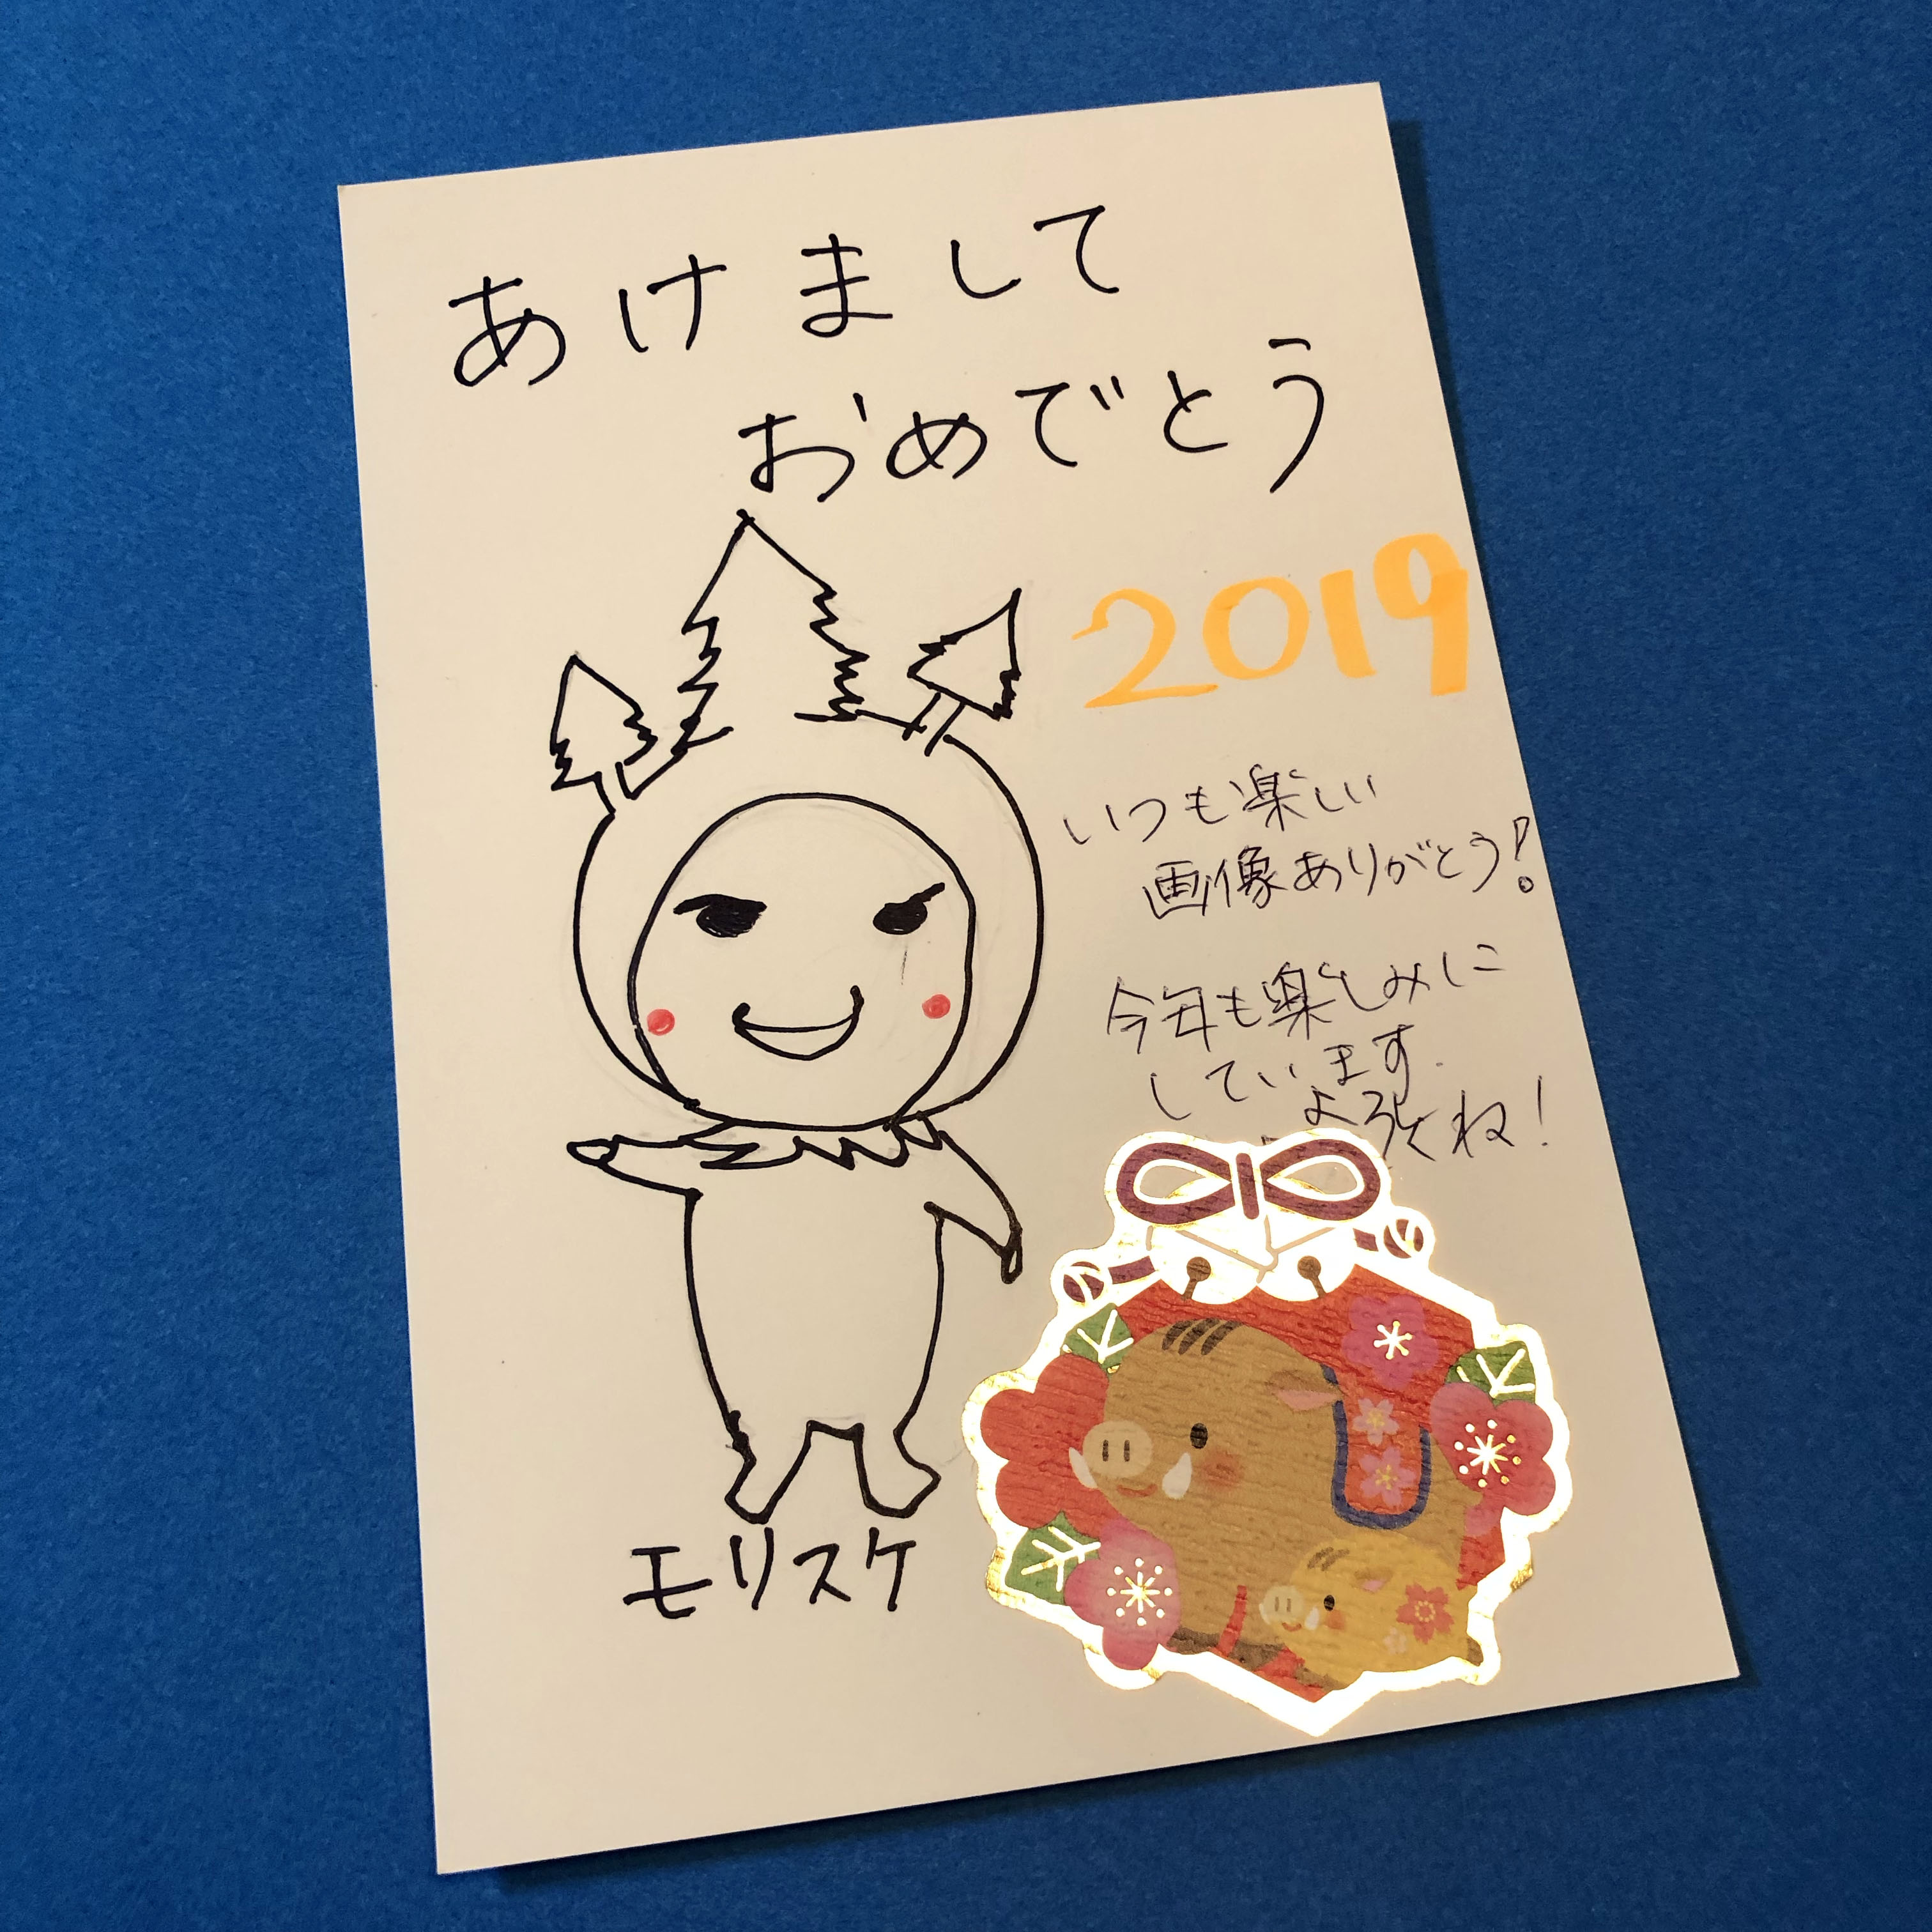 あけまして
おめでとう
2019
いつも楽しい
画像ありがとう!
今年も楽しみに
しています.
よろしくね!
モリスケ